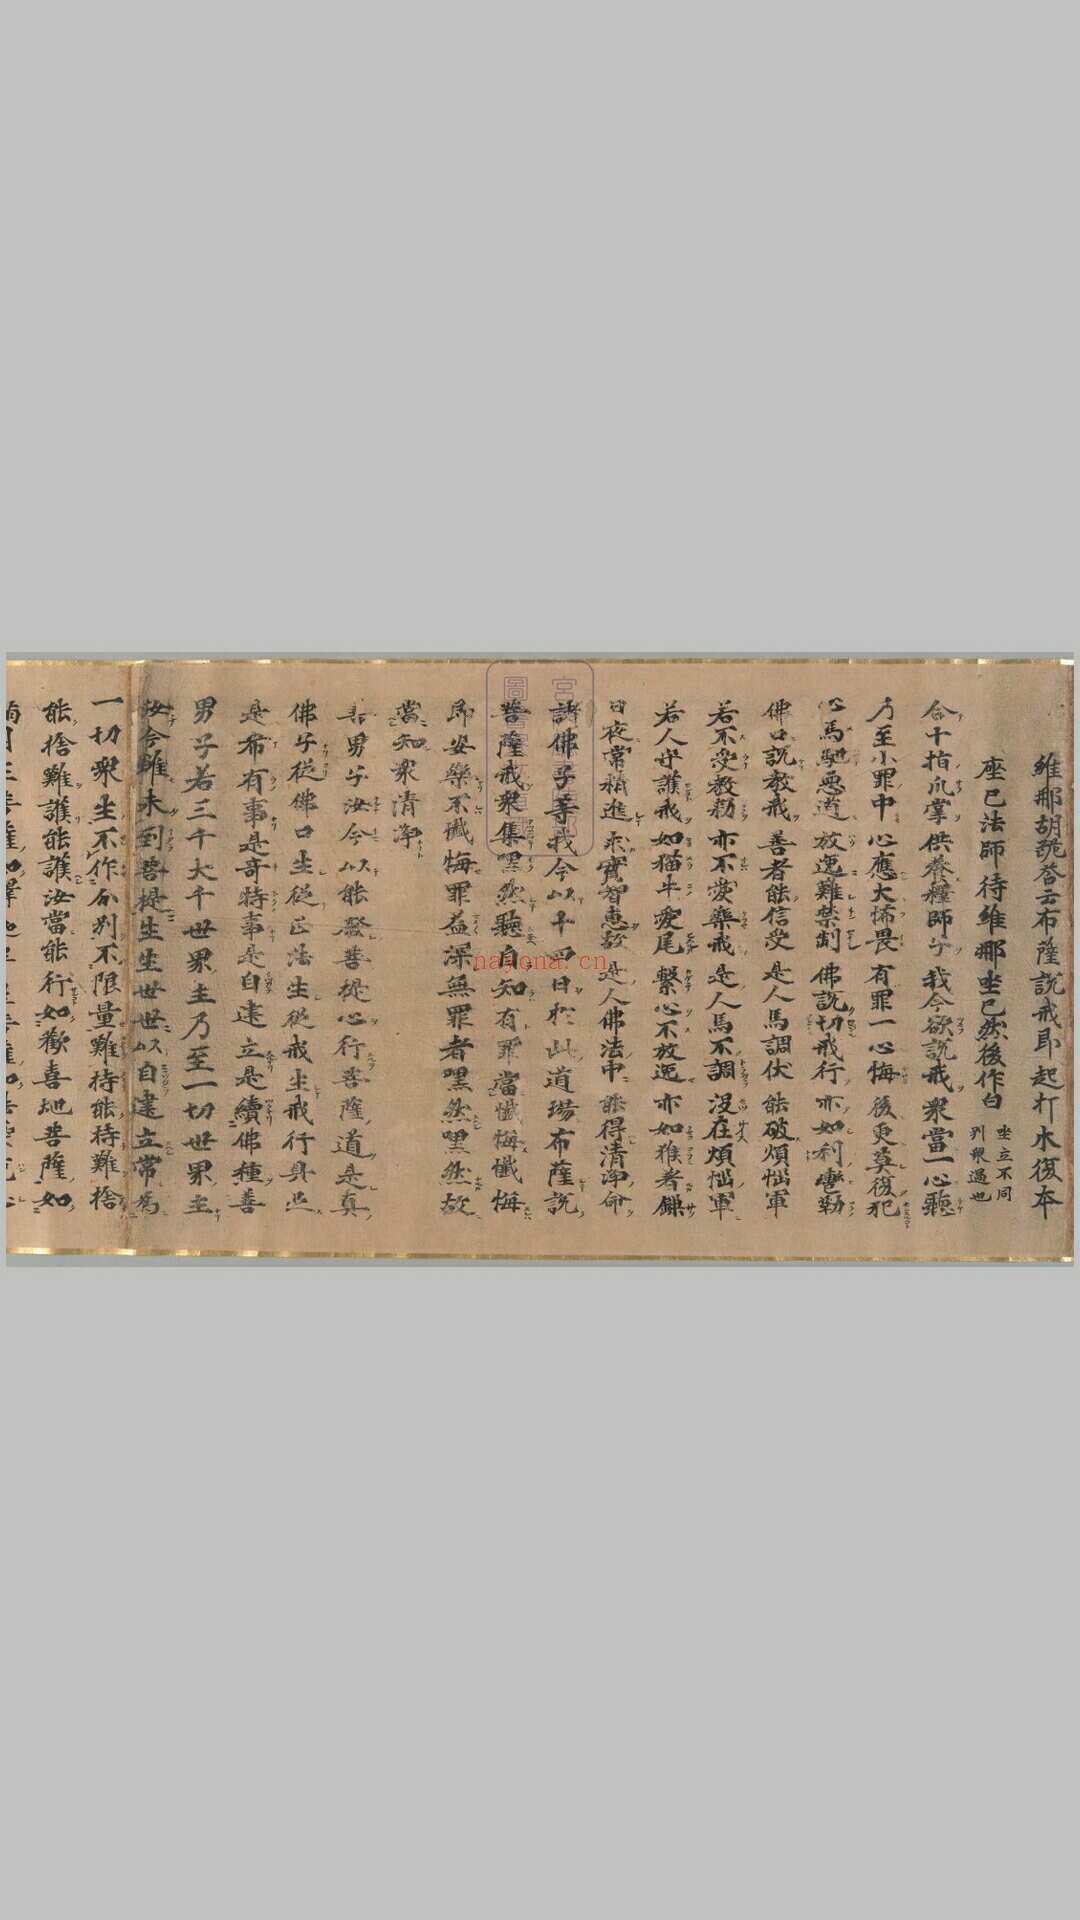 維那胡跪答云布薩說戒即起打木復本
座已法師待維那坐已然後作白 坐立不同
別衆過也
合十指爪掌 供養釋師子 我今欲說戒 衆當一心聽
乃至小罪中 心應大怖畏 有罪一心悔 後更莫復犯
心馬馳惡道 放逸難禁制 佛說切戒行 亦如利轡勒
佛口說教戒 善者能信受 是人馬調伏 能破煩惱軍
若不受教勅 亦不愛樂戒 是人馬不調 没在煩惱軍
若人守護戒 如猫牛愛尾 繫心不放逸 亦如猴著鏁
日夜常精進 求實智惠故 是人佛法中 能得清淨命
諸佛子等我今以十四日於此道場布薩說
菩薩戒衆集嘿然聽自知有罪當懺悔懺悔
即安樂不懺悔罪益深無罪者嘿然嘿然故
當知衆清淨
善男子汝今以能發菩提心行菩薩道是真
佛子從佛口生從正法生從戒生戒行具足
是希有事是奇特事是自建立是續佛種善
男子若三千大千世界主乃至一切世界主
汝今雖未到菩提生生世世以自建立常為
一切衆生不作分別不限量難持能持難捨
能捨難護能護汝當能行如歡喜地菩薩如
宮
圖書
nayona.cn